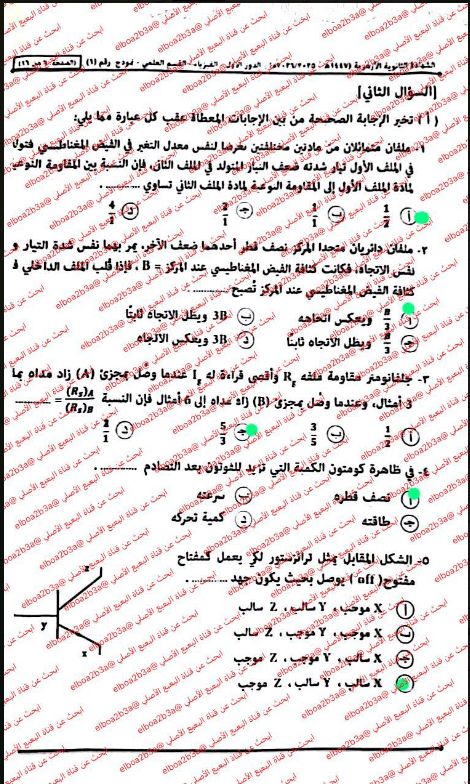 الشهادة الثانوية الأزهرية ١٤٤٧هـ - ٢٠٢٥/٢٠٢٦م، الدور الأول - الفيزياء - القسم العلمي - نموذج رقم (٦)
[السؤال الثاني]
( أ ) تخير الإجابة الصحيحة من بين الإجابات المعطاة عقب كل عبارة مما يلي:
١- ملفان متماثلان من مادتين مختلفتين تعرضا لنفس معدل التغير في الفيض المغناطيسي فتولد
في الملف الأول تيار شدته ضعف التيار المتولد في الملف الثاني، فإن النسبة بين المقاومة النوعية
لمادة الملف الأول إلى المقاومة النوعية لمادة الملف الثاني تساوي ..........
أ 1/2 ب 1/1 جـ 2/1 د 4/1
٢- ملفان دائريان متحدا المركز نصف قطر أحدهما ضعف الآخر، يمر بهما نفس شدة التيار و
نفس الاتجاه، فكانت كثافة الفيض المغناطيسي عند المركز = B ، فإذا قُلب الملف الداخلي ف
كثافة الفيض المغناطيسي عند المركز تُصبح ..........
أ B/3 وينعكس اتجاهه ب 3B ويظل الاتجاه ثابتًا
جـ B/3 ويظل الاتجاه ثابتًا د 3B وينعكس الاتجاه
٣- جلفانومتر مقاومة ملفه Rg وأقصى قراءة له Ig عندما وصل بمجزئ (A) زاد مداه بما
3 أمثال، وعندما وصل بمجزئ (B) زاد مداه إلى 6 أمثال فإن النسبة (Rs)A/(Rs)B = ..........
أ 1/2 ب 3/5 جـ 5/3 د 2/1
٤- في ظاهرة كومتون الكمية التي تزيد للفوتون بعد التصادم ..........
أ نصف قطره ب سرعته
جـ طاقته د كمية تحركه
٥- الشكل المقابل يمثل ترانزستور لكي يعمل كمفتاح
مفتوح( off ) يوصل بحيث يكون جهد ..........
أ X موجب ، Y سالب ، Z سالب
ب X موجب ، Y موجب ، Z سالب
جـ X سالب ، Y موجب ، Z سالب
د X سالب ، Y سالب ، Z موجب
y
x
ابحث عن قناة البعبع الأصلي @elboa2b3a